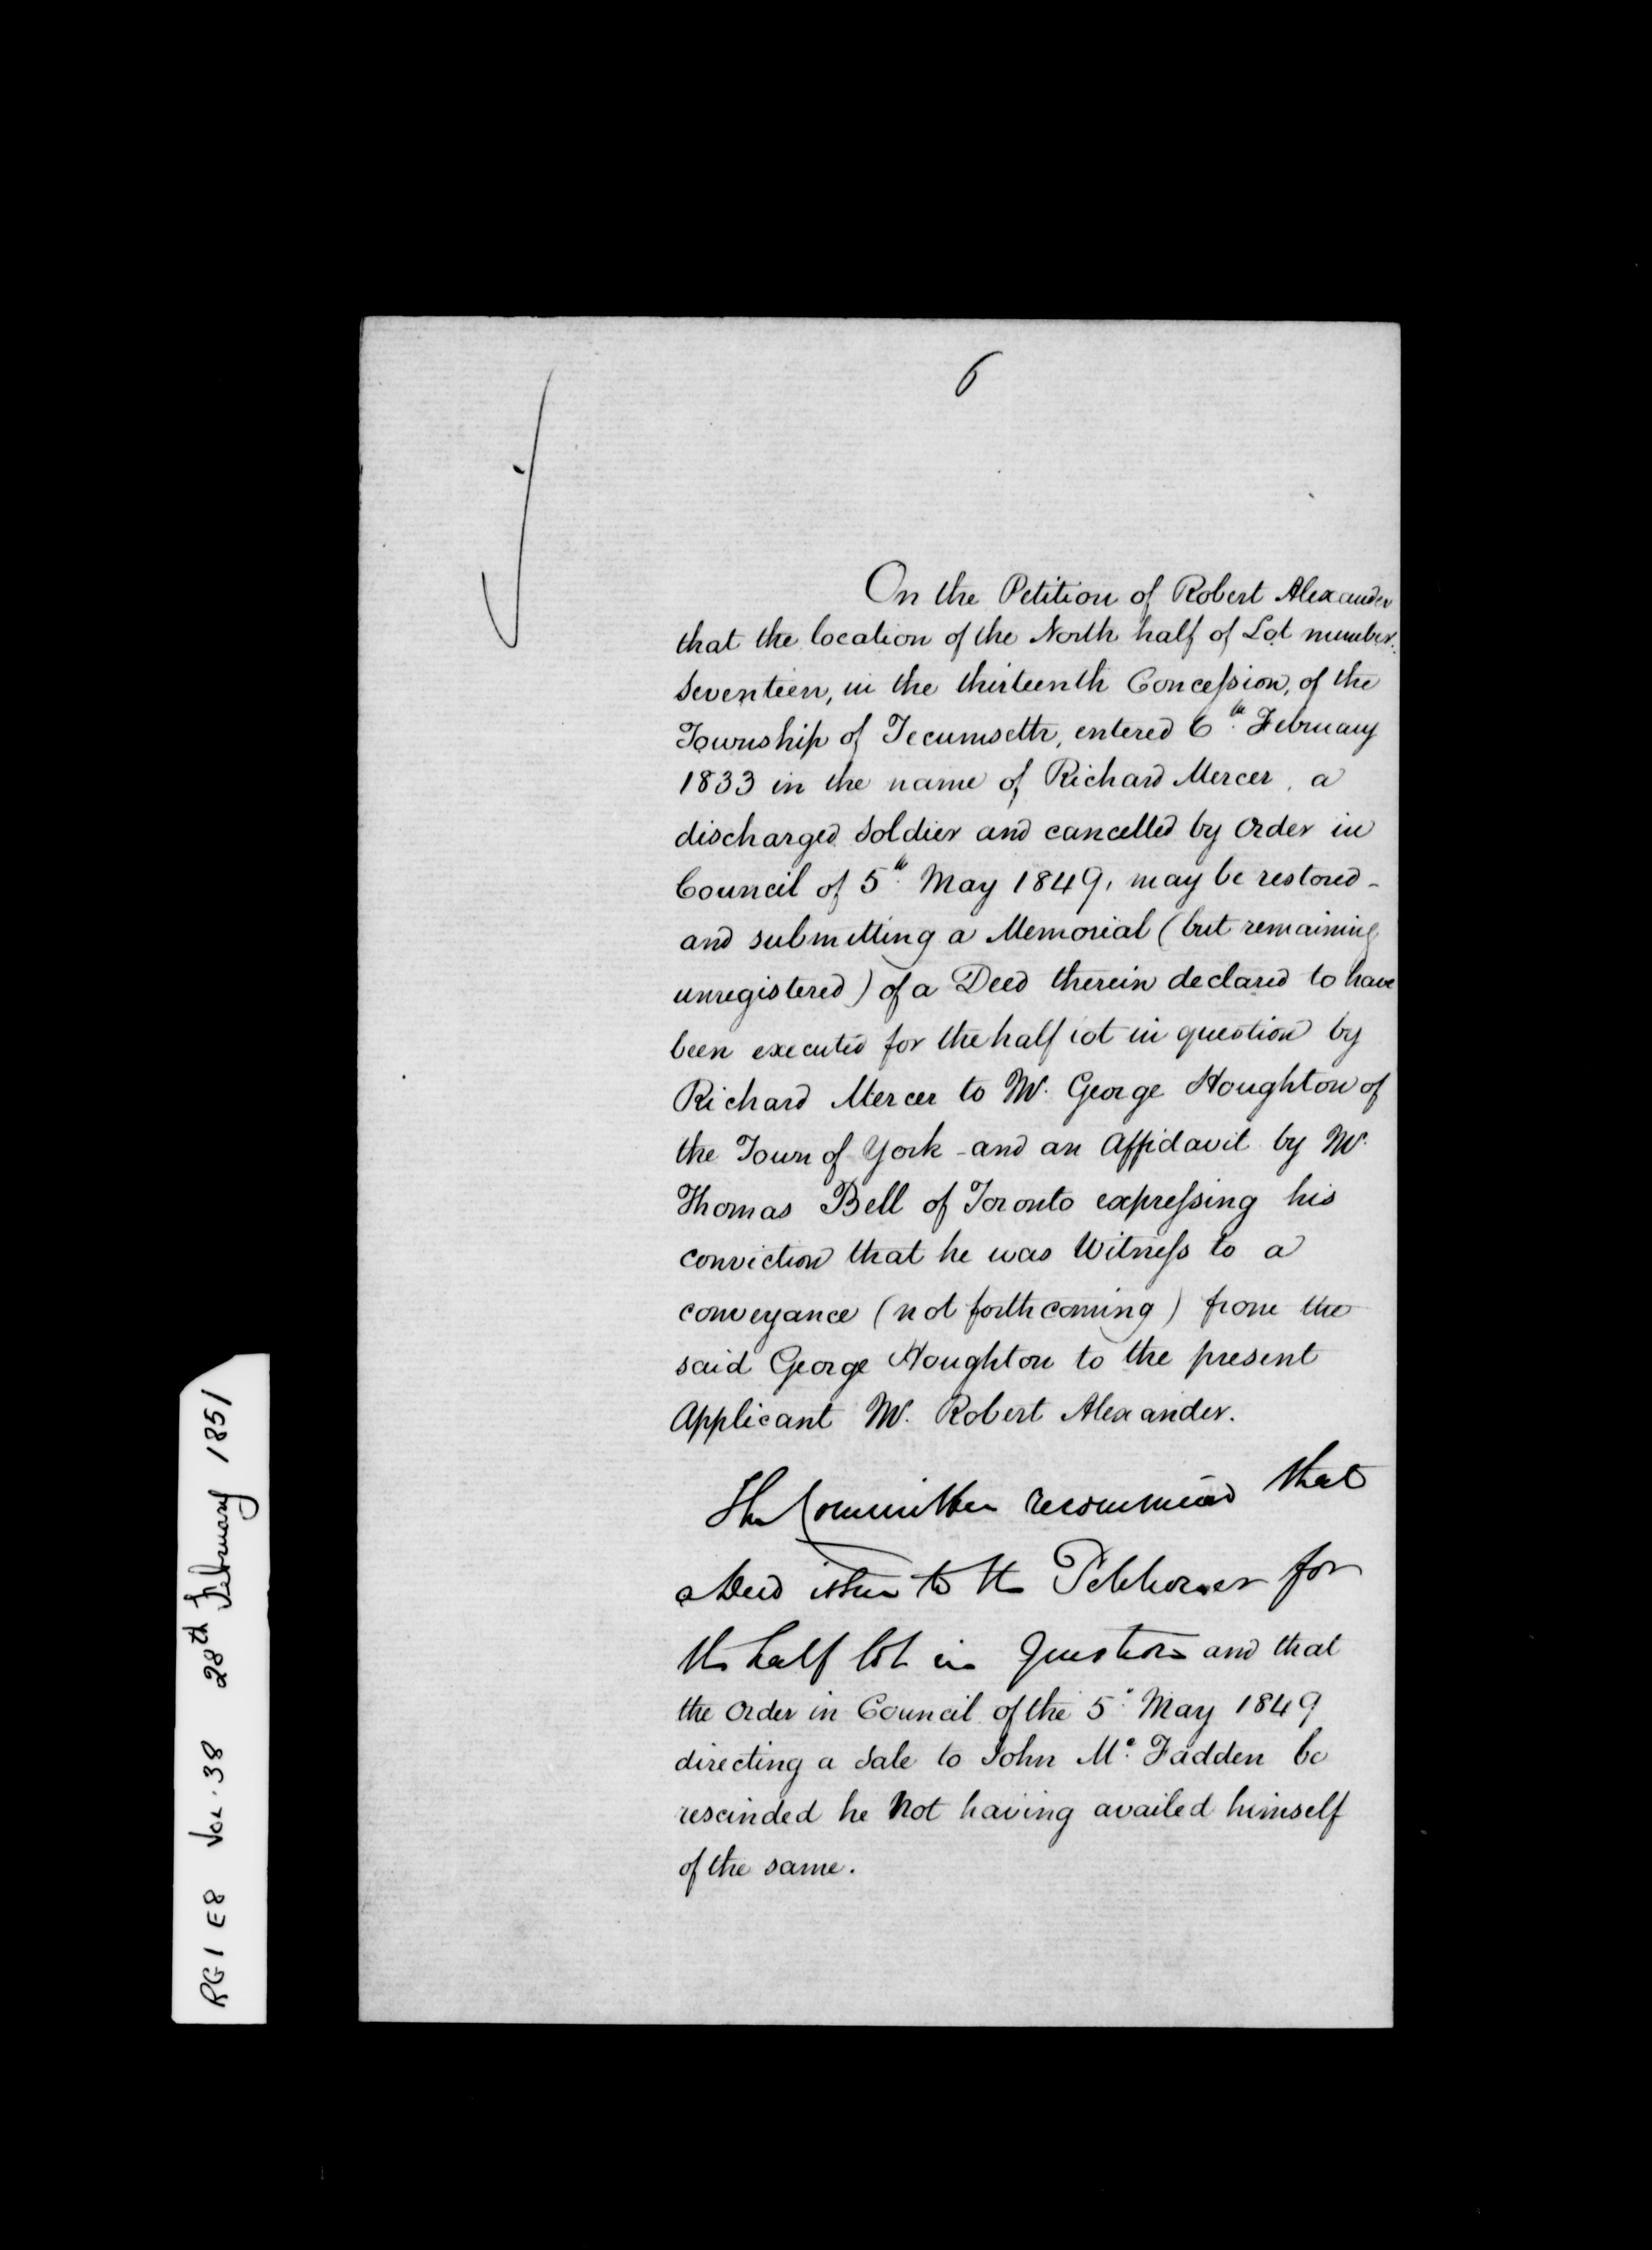 6
On the Petition of Robert Alexander
that the location of the North half of Lot number
Seventeen, in the thirteenth Concession, of the
Township of Tecumseth, entered 6th February
1833 in the name of Richard Mercer, a
discharged Soldier and cancelled by Order in
Council of 5th May 1849, may be restored -
and submitting a Memorial (but remaining
unregistered) of a Deed therein declared to have
been executed for the half lot in question by
Richard Mercer to Mr. George Houghton of
the Town of York - and an Affidavit by Mr.
Thomas Bell of Toronto expressing his
conviction that he was Witness to a
conveyance (not forthcoming) from the
said George Houghton to the present
Applicant Mr. Robert Alexander.
The Committee recommend that
a Deed issue to the Petitioner for
the half lot in question and that
the Order in Council of the 5th May 1849
directing a Sale to John Mc. Fadden be
rescinded he not having availed himself
of the same.
RG1 E8 Vol. 38 28th February 1851